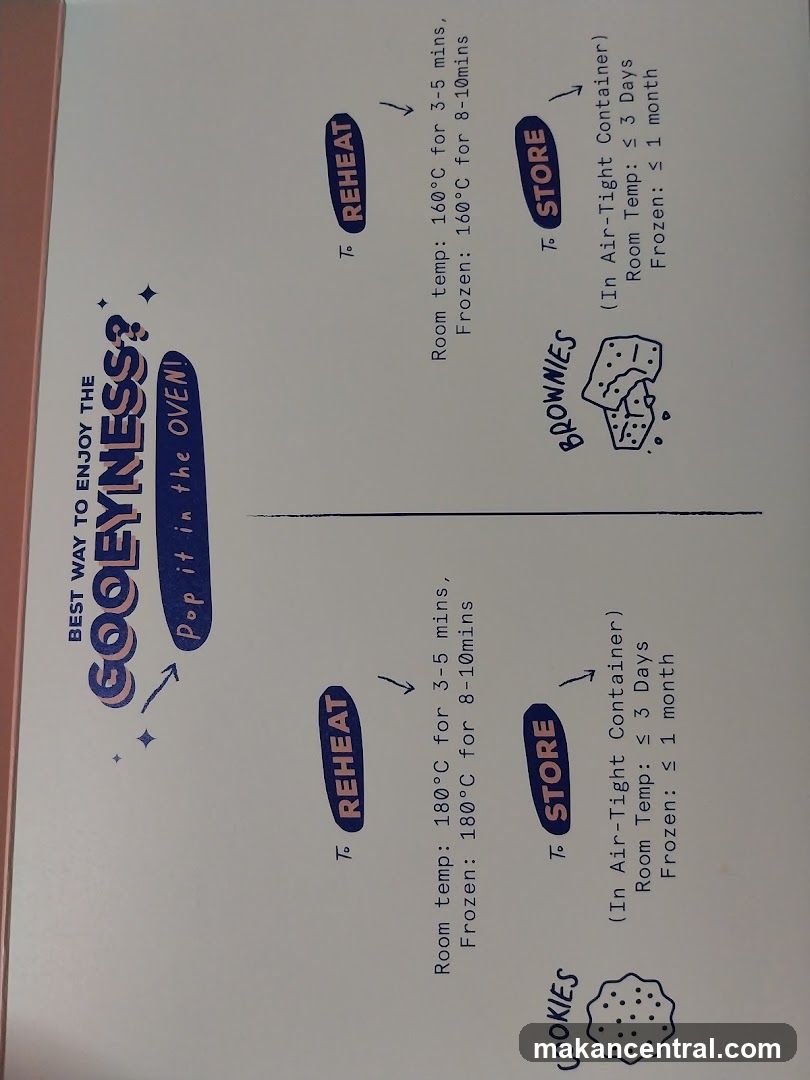 BEST WAY TO ENJOY THE
GOOEYNESS?
Pop it in the OVEN!
COOKIES
To REHEAT
Room temp: 180°C for 3-5 mins,
Frozen: 180°C for 8-10mins
To STORE
(In Air-Tight Container)
Room Temp: ≤ 3 Days
Frozen: ≤ 1 month
BROWNIES
To REHEAT
Room temp: 160°C for 3-5 mins,
Frozen: 160°C for 8-10mins
To STORE
(In Air-Tight Container)
Room Temp: ≤ 3 Days
Frozen: ≤ 1 month
makancentral.com